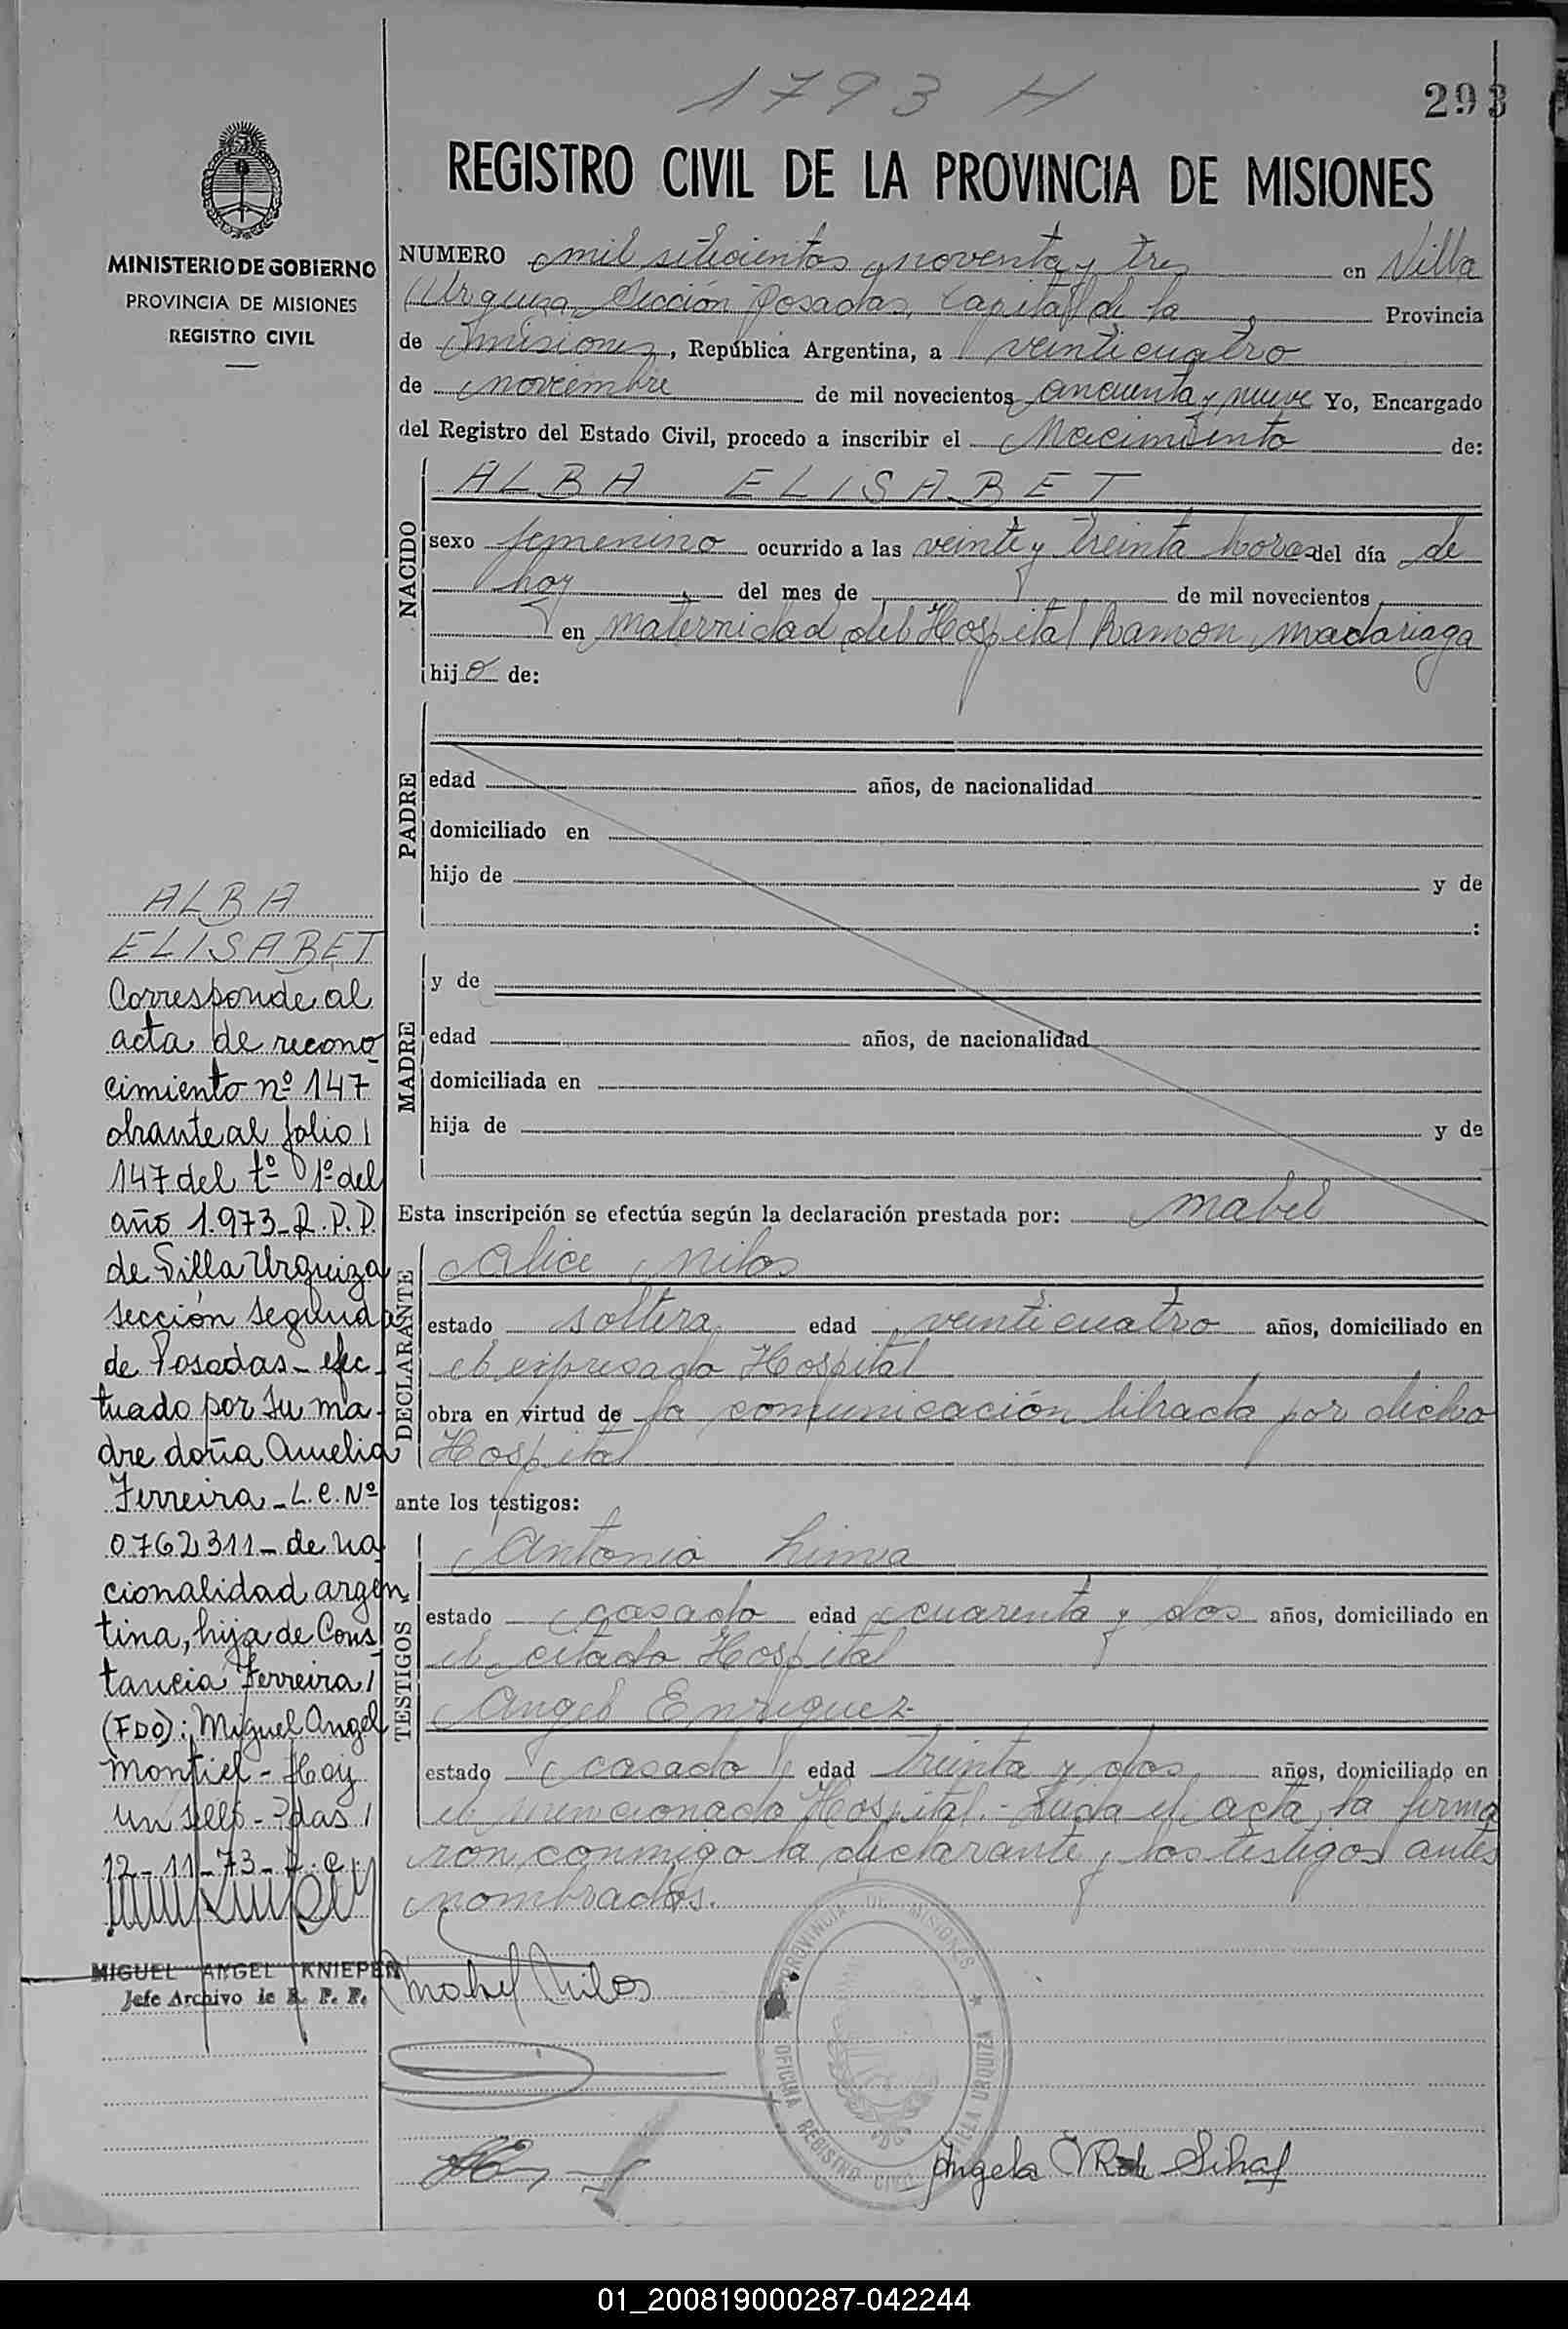 1793 H
293
REGISTRO CIVIL DE LA PROVINCIA DE MISIONES
MINISTERIO DE GOBIERNO
PROVINCIA DE MISIONES
REGISTRO CIVIL
NUMERO mil setecientos noventa y tres en Villa
Urquiza, Sección Posadas, Capital de la Provincia
de Misiones, República Argentina, a veinticuatro
de noviembre de mil novecientos cincuenta y nueve Yo, Encargado
del Registro del Estado Civil, procedo a inscribir el Nacimiento de:
NACIDO
ALBA ELISABET
sexo femenino ocurrido a las veinte y treinta horas del día de
hoy del mes de de mil novecientos
en maternidad del Hospital Ramon Madariaga
hija de:
PADRE
edad años, de nacionalidad
domiciliado en
hijo de y de
:
MADRE
y de
edad años, de nacionalidad
domiciliada en
hija de y de
Esta inscripción se efectúa según la declaración prestada por: Mabel
DECLARANTE
Alice Milos
estado soltera edad veinticuatro años, domiciliado en
el expresado Hospital
obra en virtud de la comunicación librada por dicho
Hospital
ante los testigos:
TESTIGOS
Antonio
estado casado edad cuarenta y dos años, domiciliado en
el citado Hospital
Angel Enriquez
estado casado edad treinta y dos años, domiciliado en
el mencionado Hospital.- Leida el acta, la firma
ron conmigo la declarante y los testigos antes
nombrados.
Mabel Milos
PROVINCIA DE MISIONES
OFICINA REGISTRO CIVIL VILLA URQUIZA
Angela
ALBA
ELISABET
Corresponde al
acta de recono
cimiento nº 147
obrante al folio
147 del tº 1º del
año 1.973-R.P.P.
de Villa Urquiza
sección segunda
de Posadas- efec
tuado por su ma
dre doña Amelia
Ferreira-L.C.Nº
0762311- de na
cionalidad argen
tina, hija de Cons
tancia Ferreira/
(FDO): Miguel Angel
Montiel- Hay
un sello- Pdas/
12-11-73-
MIGUEL ANGEL KNIEPER
Jefe Archivo de R. P. P.
01_200819000287-042244